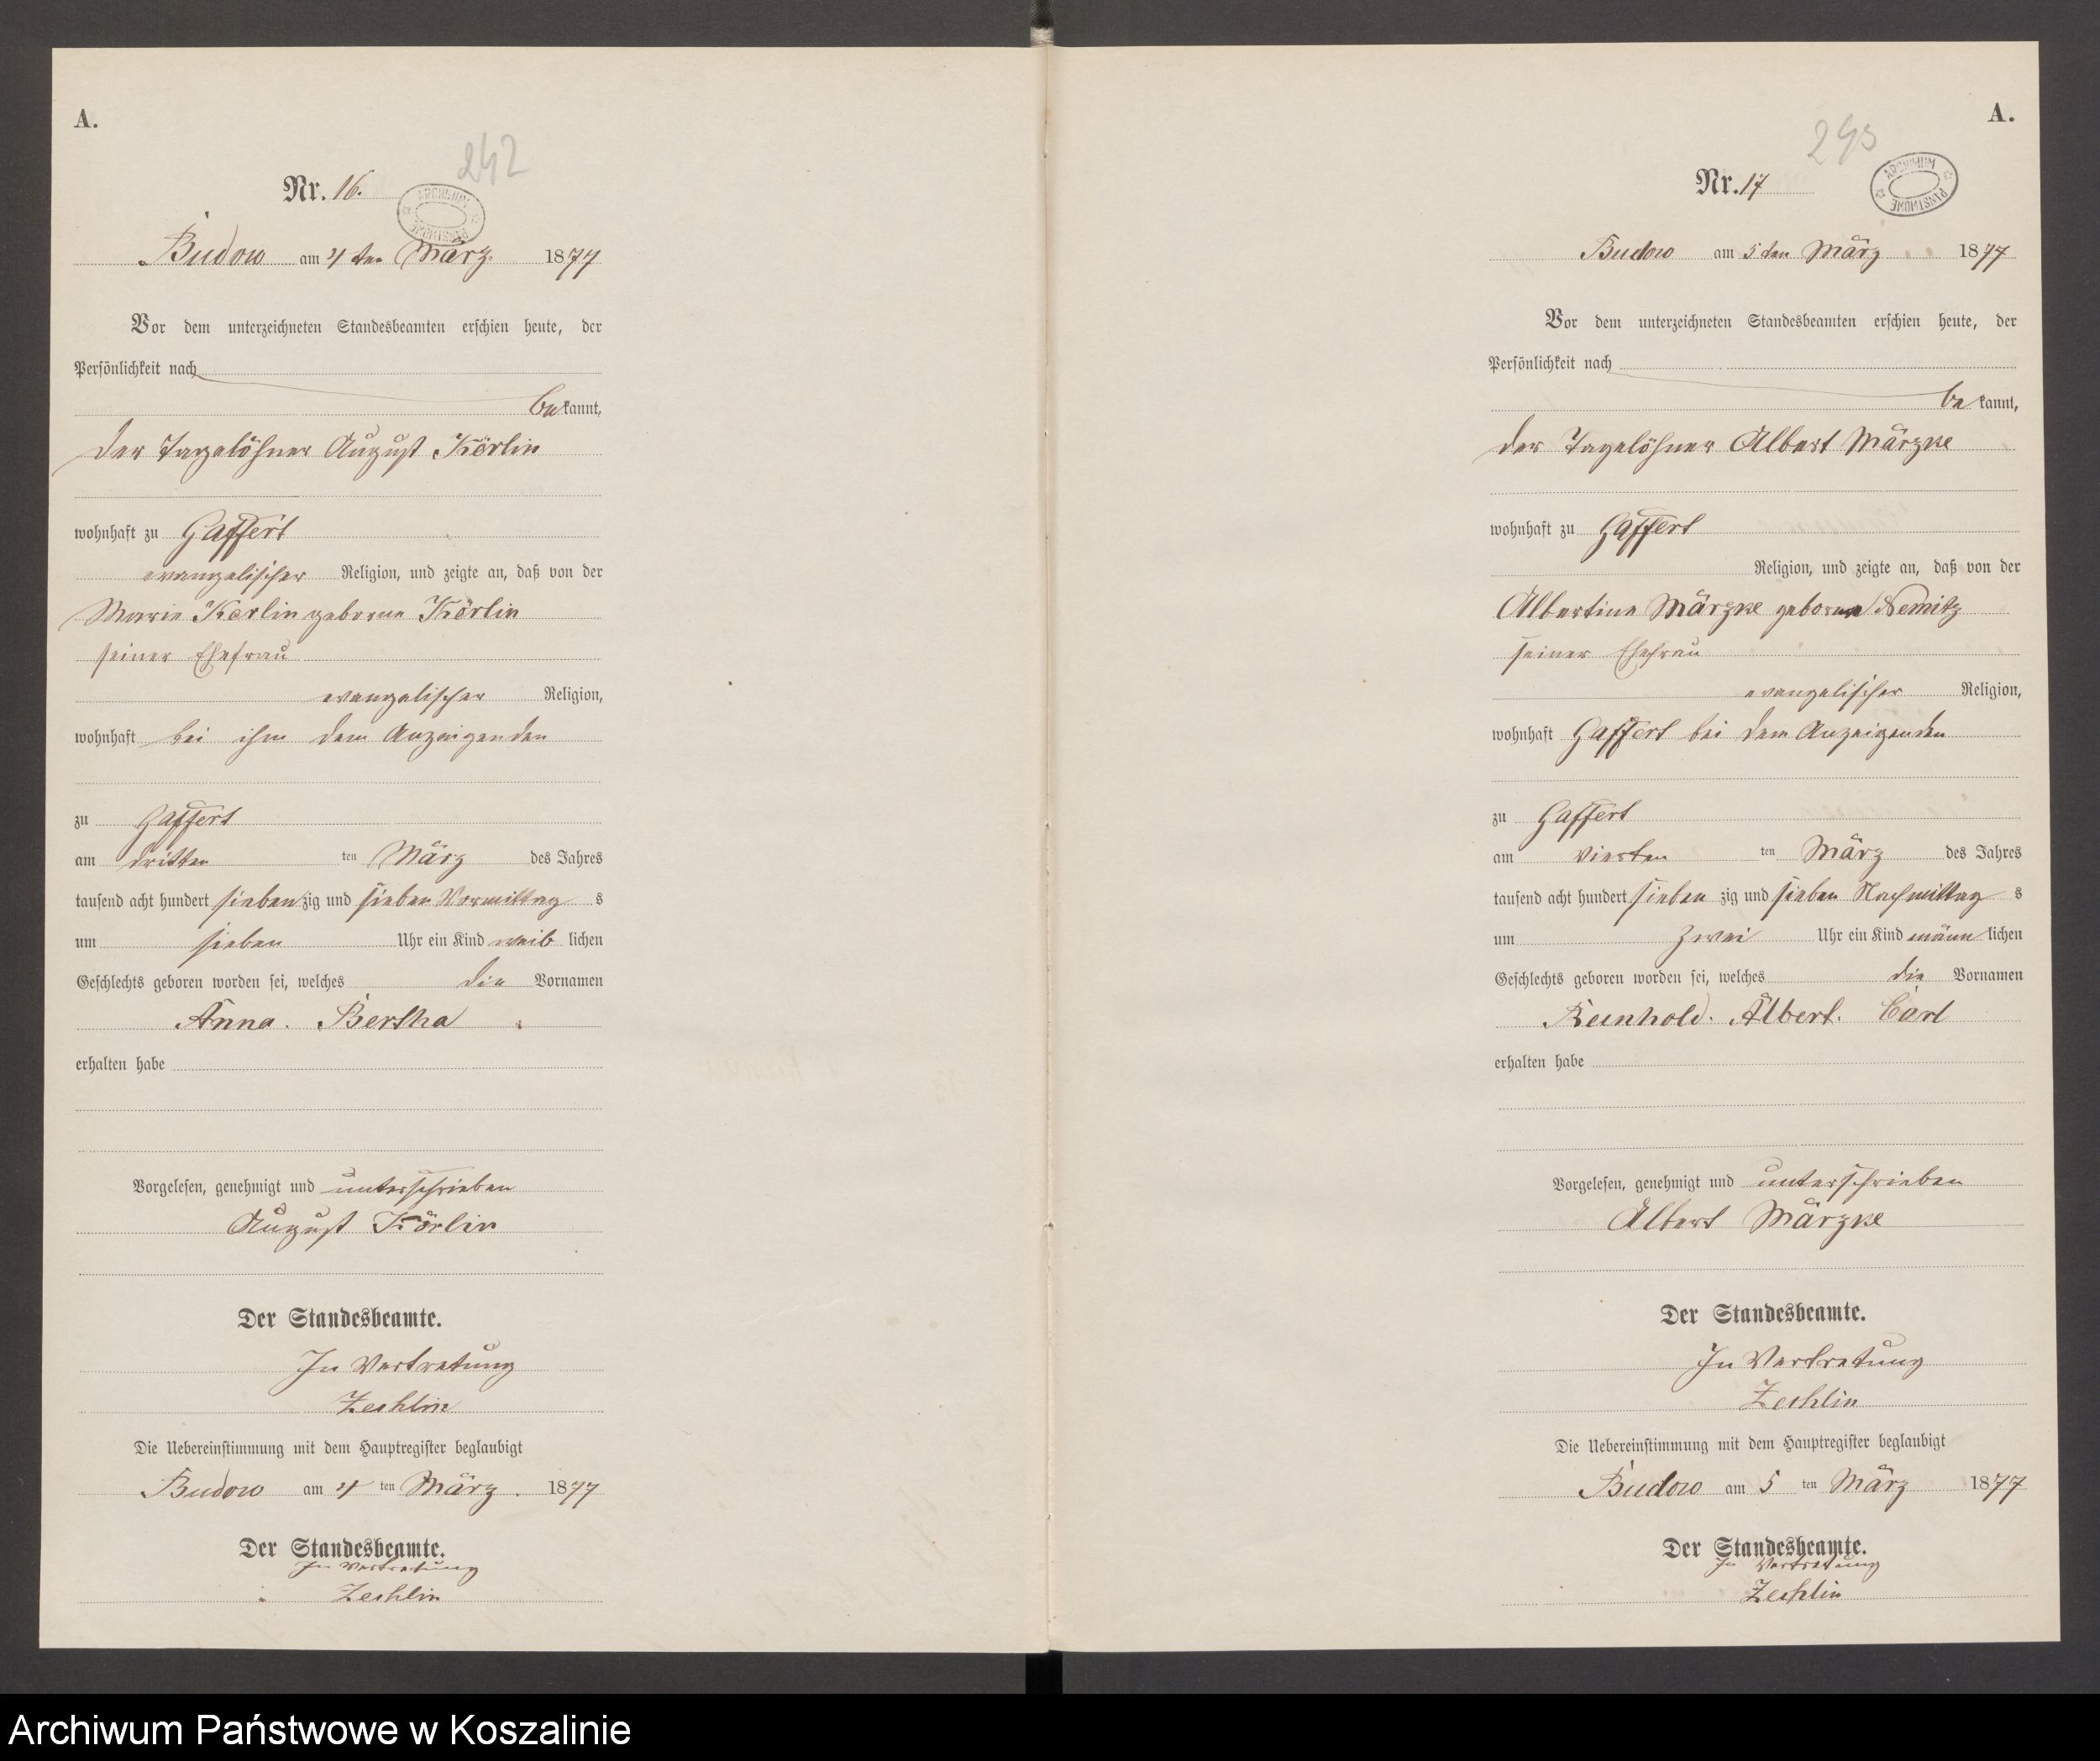 A.
242
Nr. 16.
ARCHIWUM PAŃSTWOWE
Budow am 4 ten März 1877
Vor dem unterzeichneten Standesbeamten erschien heute, der
Persönlichkeit nach
bekannt,
der Tagelöhner August Körlin
wohnhaft zu Gaffert
evangelischer Religion, und zeigte an, daß von der
Marie Kerlin geborne Körlin
seiner Ehefrau
evangelischer Religion,
wohnhaft bei ihm dem Anzeigenden
zu Gaffert
am dritten ten März des Jahres
tausend acht hundert siebenzig und sieben Vormittag s
um sieben Uhr ein Kind weiblichen
Geschlechts geboren worden sei, welches die Vornamen
Anna. Bertha
erhalten habe
Vorgelesen, genehmigt und unterschrieben
August Körlin
Der Standesbeamte.
In Vertretung
Zechlin
Die Uebereinstimmung mit dem Hauptregister beglaubigt
Budow am 4 ten März. 1877
Der Standesbeamte.
In Vertretung
Zechlin
A.
243
Nr. 17
ARCHIWUM PAŃSTWOWE
Budow am 5 ten März 1877
Vor dem unterzeichneten Standesbeamten erschien heute, der
Persönlichkeit nach
bekannt,
der Tagelöhner Albert Märzke
wohnhaft zu Gaffert
Religion, und zeigte an, daß von der
Albertine Märzke geborne Nemitz
seiner Ehefrau
evangelischer Religion,
wohnhaft Gaffert bei dem Anzeigenden
zu Gaffert
am vierten ten März des Jahres
tausend acht hundert siebenzig und sieben Nachmittag s
um zwei Uhr ein Kind männlichen
Geschlechts geboren worden sei, welches die Vornamen
Reinhold. Albert. Carl
erhalten habe
Vorgelesen, genehmigt und unterschrieben
Albert Märzke
Der Standesbeamte.
In Vertretung
Zechlin
Die Uebereinstimmung mit dem Hauptregister beglaubigt
Budow am 5 ten März 1877
Der Standesbeamte.
In Vertretung
Zechlin
Archiwum Państwowe w Koszalinie